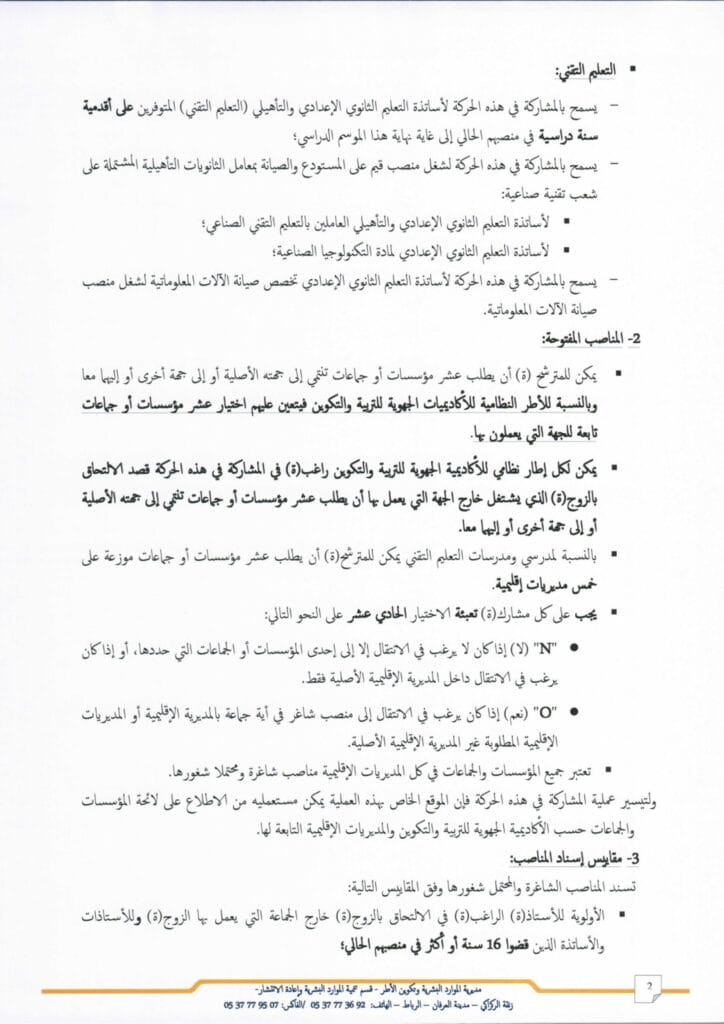 ▪ التعليم التقني:
– يسمح بالمشاركة في هذه الحركة لأساتذة التعليم الثانوي الإعدادي والتأهيلي (التعليم التقني) المتوفرين على أقدمية
سنة دراسية في منصبهم الحالي إلى غاية نهاية هذا الموسم الدراسي؛
– يسمح بالمشاركة في هذه الحركة لشغل منصب قيم على المستودع والصيانة بمعامل الثانويات التأهيلية المشتملة على
شعب تقنية صناعية:
▪ لأساتذة التعليم الثانوي الإعدادي والتأهيلي العاملين بالتعليم التقني الصناعي؛
▪ لأساتذة التعليم الثانوي الإعدادي لمادة التكنولوجيا الصناعية؛
– يسمح بالمشاركة في هذه الحركة لأساتذة التعليم الثانوي الإعدادي تخصص صيانة الآلات المعلوماتية لشغل منصب
صيانة الآلات المعلوماتية.
2- المناصب المفتوحة:
▪ يمكن للمترشح (ة) أن يطلب عشر مؤسسات أو جماعات تنتمي إلى جهته الأصلية أو إلى جهة أخرى أو إليهما معا
وبالنسبة للأطر النظامية للأكاديميات الجهوية للتربية والتكوين فيتعين عليهم اختيار عشر مؤسسات أو جماعات
تابعة للجهة التي يعملون بها.
▪ يمكن لكل إطار نظامي للأكاديمية الجهوية للتربية والتكوين راغب(ة) في المشاركة في هذه الحركة قصد الالتحاق
بالزوج(ة) الذي يشتغل خارج الجهة التي يعمل بها أن يطلب عشر مؤسسات أو جماعات تنتمي إلى جهته الأصلية
أو إلى جهة أخرى أو إليهما معا.
▪ بالنسبة لمدرسي ومدرسات التعليم التقني يمكن للمترشح(ة) أن يطلب عشر مؤسسات أو جماعات موزعة على
خمس مديريات إقليمية.
▪ يجب على كل مشارك(ة) تعبئة الاختيار الحادي عشر على النحو التالي:
● "N" (لا) إذا كان لا يرغب في الانتقال إلا إلى إحدى المؤسسات أو الجماعات التي حددها، أو إذا كان
يرغب في الانتقال داخل المديرية الإقليمية الأصلية فقط.
● "O" (نعم) إذا كان يرغب في الانتقال إلى منصب شاغر في أية جماعة بالمديرية الإقليمية أو المديريات
الإقليمية المطلوبة غير المديرية الإقليمية الأصلية.
▪ تعتبر جميع المؤسسات والجماعات في كل المديريات الإقليمية مناصب شاغرة ومحتملا شغورها.
ولتيسير عملية المشاركة في هذه الحركة فإن الموقع الخاص بهذه العملية يمكن مستعمليه من الاطلاع على لائحة المؤسسات
والجماعات حسب الأكاديمية الجهوية للتربية والتكوين والمديريات الإقليمية التابعة لها.
3- مقاييس إسناد المناصب:
تسند المناصب الشاغرة والمحتمل شغورها وفق المقاييس التالية:
▪ الأولوية للأستاذ(ة) الراغب(ة) في الالتحاق بالزوج(ة) خارج الجماعة التي يعمل بها الزوج(ة) وللأستاذات
والأساتذة الذين قضوا 16 سنة أو أكثر في منصبهم الحالي؛
مديرية الموارد البشرية وتكوين الأطر - قسم تنمية الموارد البشرية وإعادة الانتشار-
زنقة الركراكي – مدينة العرفان – الرباط – الهاتف: 92 36 77 37 05 /الفاكس: 07 95 77 37 05
2